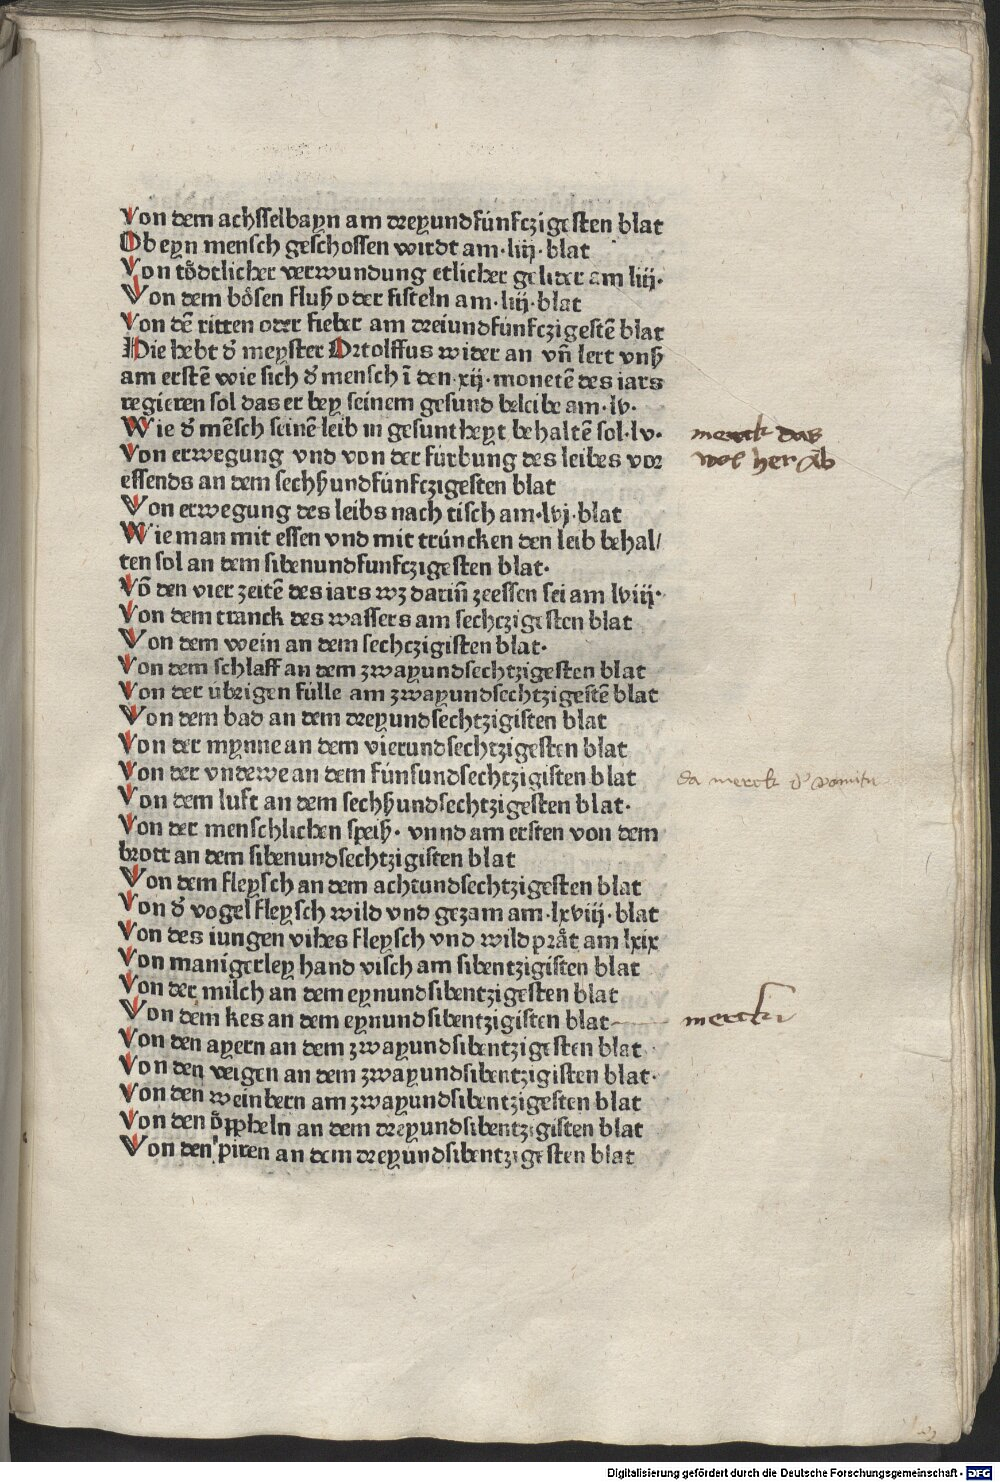 Von dem achsselbayn am dreyundfünfczigesten blat
Ob eyn mensch geschossen wirdt am·liij·blat
Von tödtlicher verwundung etlicher gelider am liij·
Von dem bösen fluß oder fisteln am·liij·blat
Von dē ritten oder fieber am dreiundfünfczigestē blat
Hie hebt d' meyster Ortolffus wider an vn̄ lert vnß
am erstē wie sich d' mensch ī den·xij·monetē des iars
regieren sol das er bey seinem gesund beleibe am·lv·
Wie d' mēsch seinē leib in gesuntheyt behaltē sol·lv·
merck das
wol her ab
Von erwegung vnd von der fürbung des leibes vor
essends an dem sechßundfünfczigesten blat
Von erwegung des leibs nach tisch am·lvj·blat
Wie man mit essen vnd mit trüncken den leib behal/
ten sol an dem sibenundfunfczigesten blat·
Vō den vier zeitē des iars wz darin̄ zeessen sei am lviij·
Von dem tranck des wassers am sechczigisten blat
Von dem wein an dem sechczigisten blat·
Von dem schlaff an dem zwayundsechtzigesten blat
Von der übrigen fülle am zwayundsechtzigestē blat
Von dem bad an dem dreyundsechtzigisten blat
Von der mynne an dem vierundsechtzigesten blat
Von der vndewe an dem fünfundsechtzigisten blat
da merck d' vomitu
Von dem luft an dem sechßundsechtzigesten blat·
Von der menschlichen speiß· vnnd am ersten von dem
brott an dem sibenundsechtzigisten blat
Von dem fleysch an dem achtundsechtzigesten blat
Von d' vogel fleysch wild vnd gezam am·lxviij·blat
Von des iungen vihes fleysch vnd wildprät am lxix
Von manigerley hand visch am sibentzigisten blat
Von der milch an dem eynundsibentzigesten blat
Von dem kes an dem eynundsibentzigisten blat
merck
Von den ayern an dem zwayundsibentzigesten blat
Von den veigen an dem zwayundsibentzigisten blat·
Von den weinbern am zwayundsibentzigesten blat
Von den öppheln an dem dreyundsibentzigisten blat
Von den piren an dem dreyundsibentzigesten blat
Digitalisierung gefördert durch die Deutsche Forschungsgemeinschaft - DFG